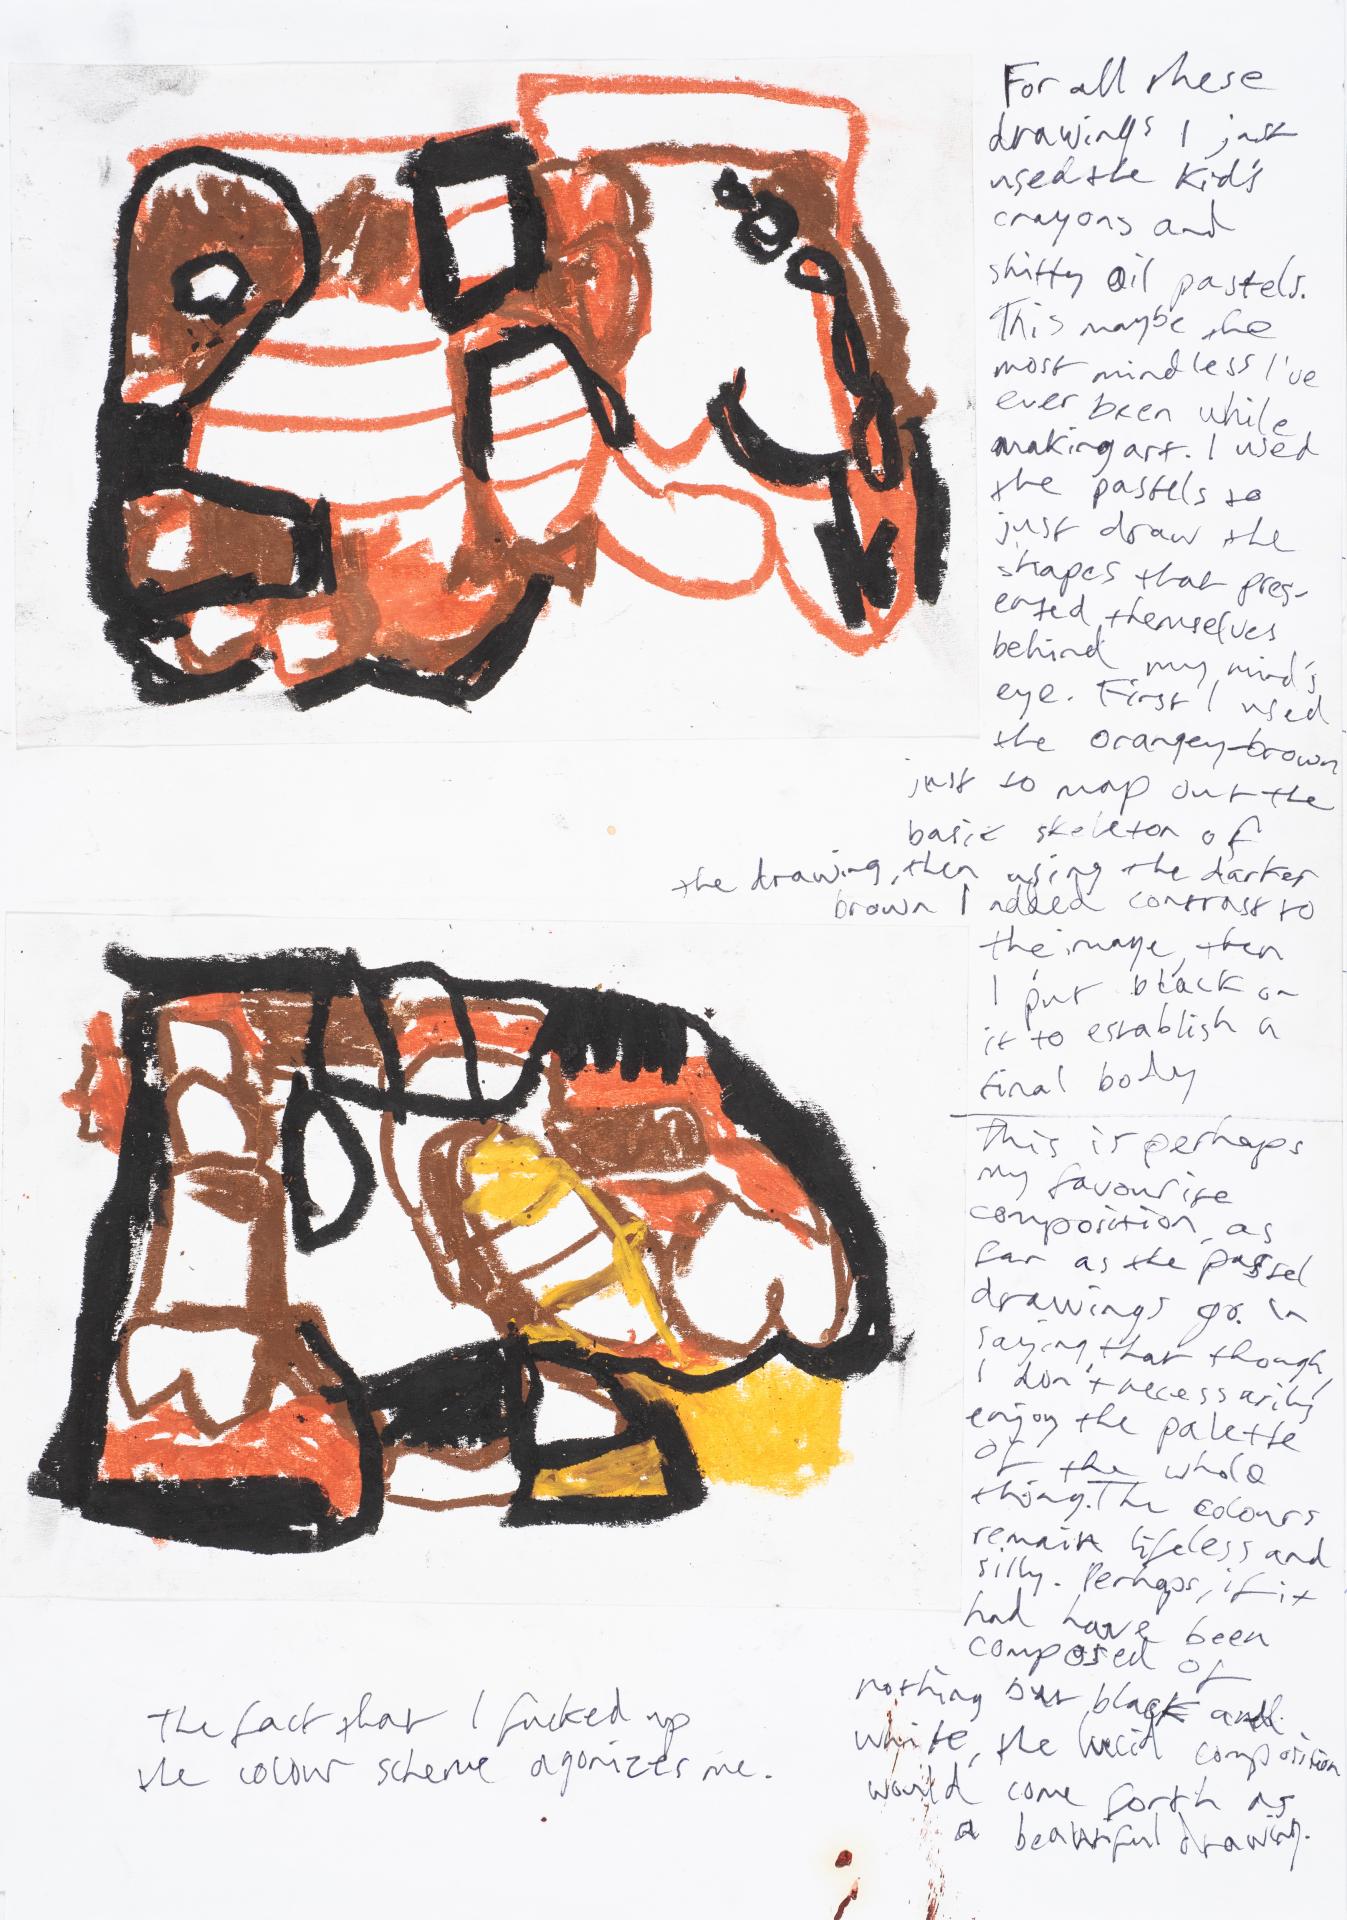 For all these
drawings I just
used the Kid's
crayons and
shitty oil pastels.
This maybe the
most mindless I've
ever been while
making art. I used
the pastels to
just draw the
shapes that pres-
ented themselves
behind my mind's
eye. First I used
the orangey-brown
just to map out the
basic skeleton of
the drawing, then using the darker
brown I added contrast to
the image, then
I put black on
it to establish a
final body
This is perhaps
my favourite
composition, as
far as the pastel
drawings go. In
saying that though,
I don't necessarily
enjoy the palette
of the whole
thing. The colours
remain lifeless and
silly. Perhaps, if it
had have been
composed of
nothing but black and
white, the lucid composition
would come forth as
a beautiful drawing.
The fact that I fucked up
the colour scheme agonizes me.